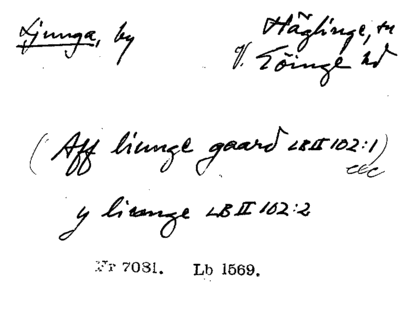 Ljunga, by Häglinge, sn
V. Göinge hd
(Aff liunge gaard LB II 102:1)
y liunge LB II 102:2
Nr 7081. Lb 1569.